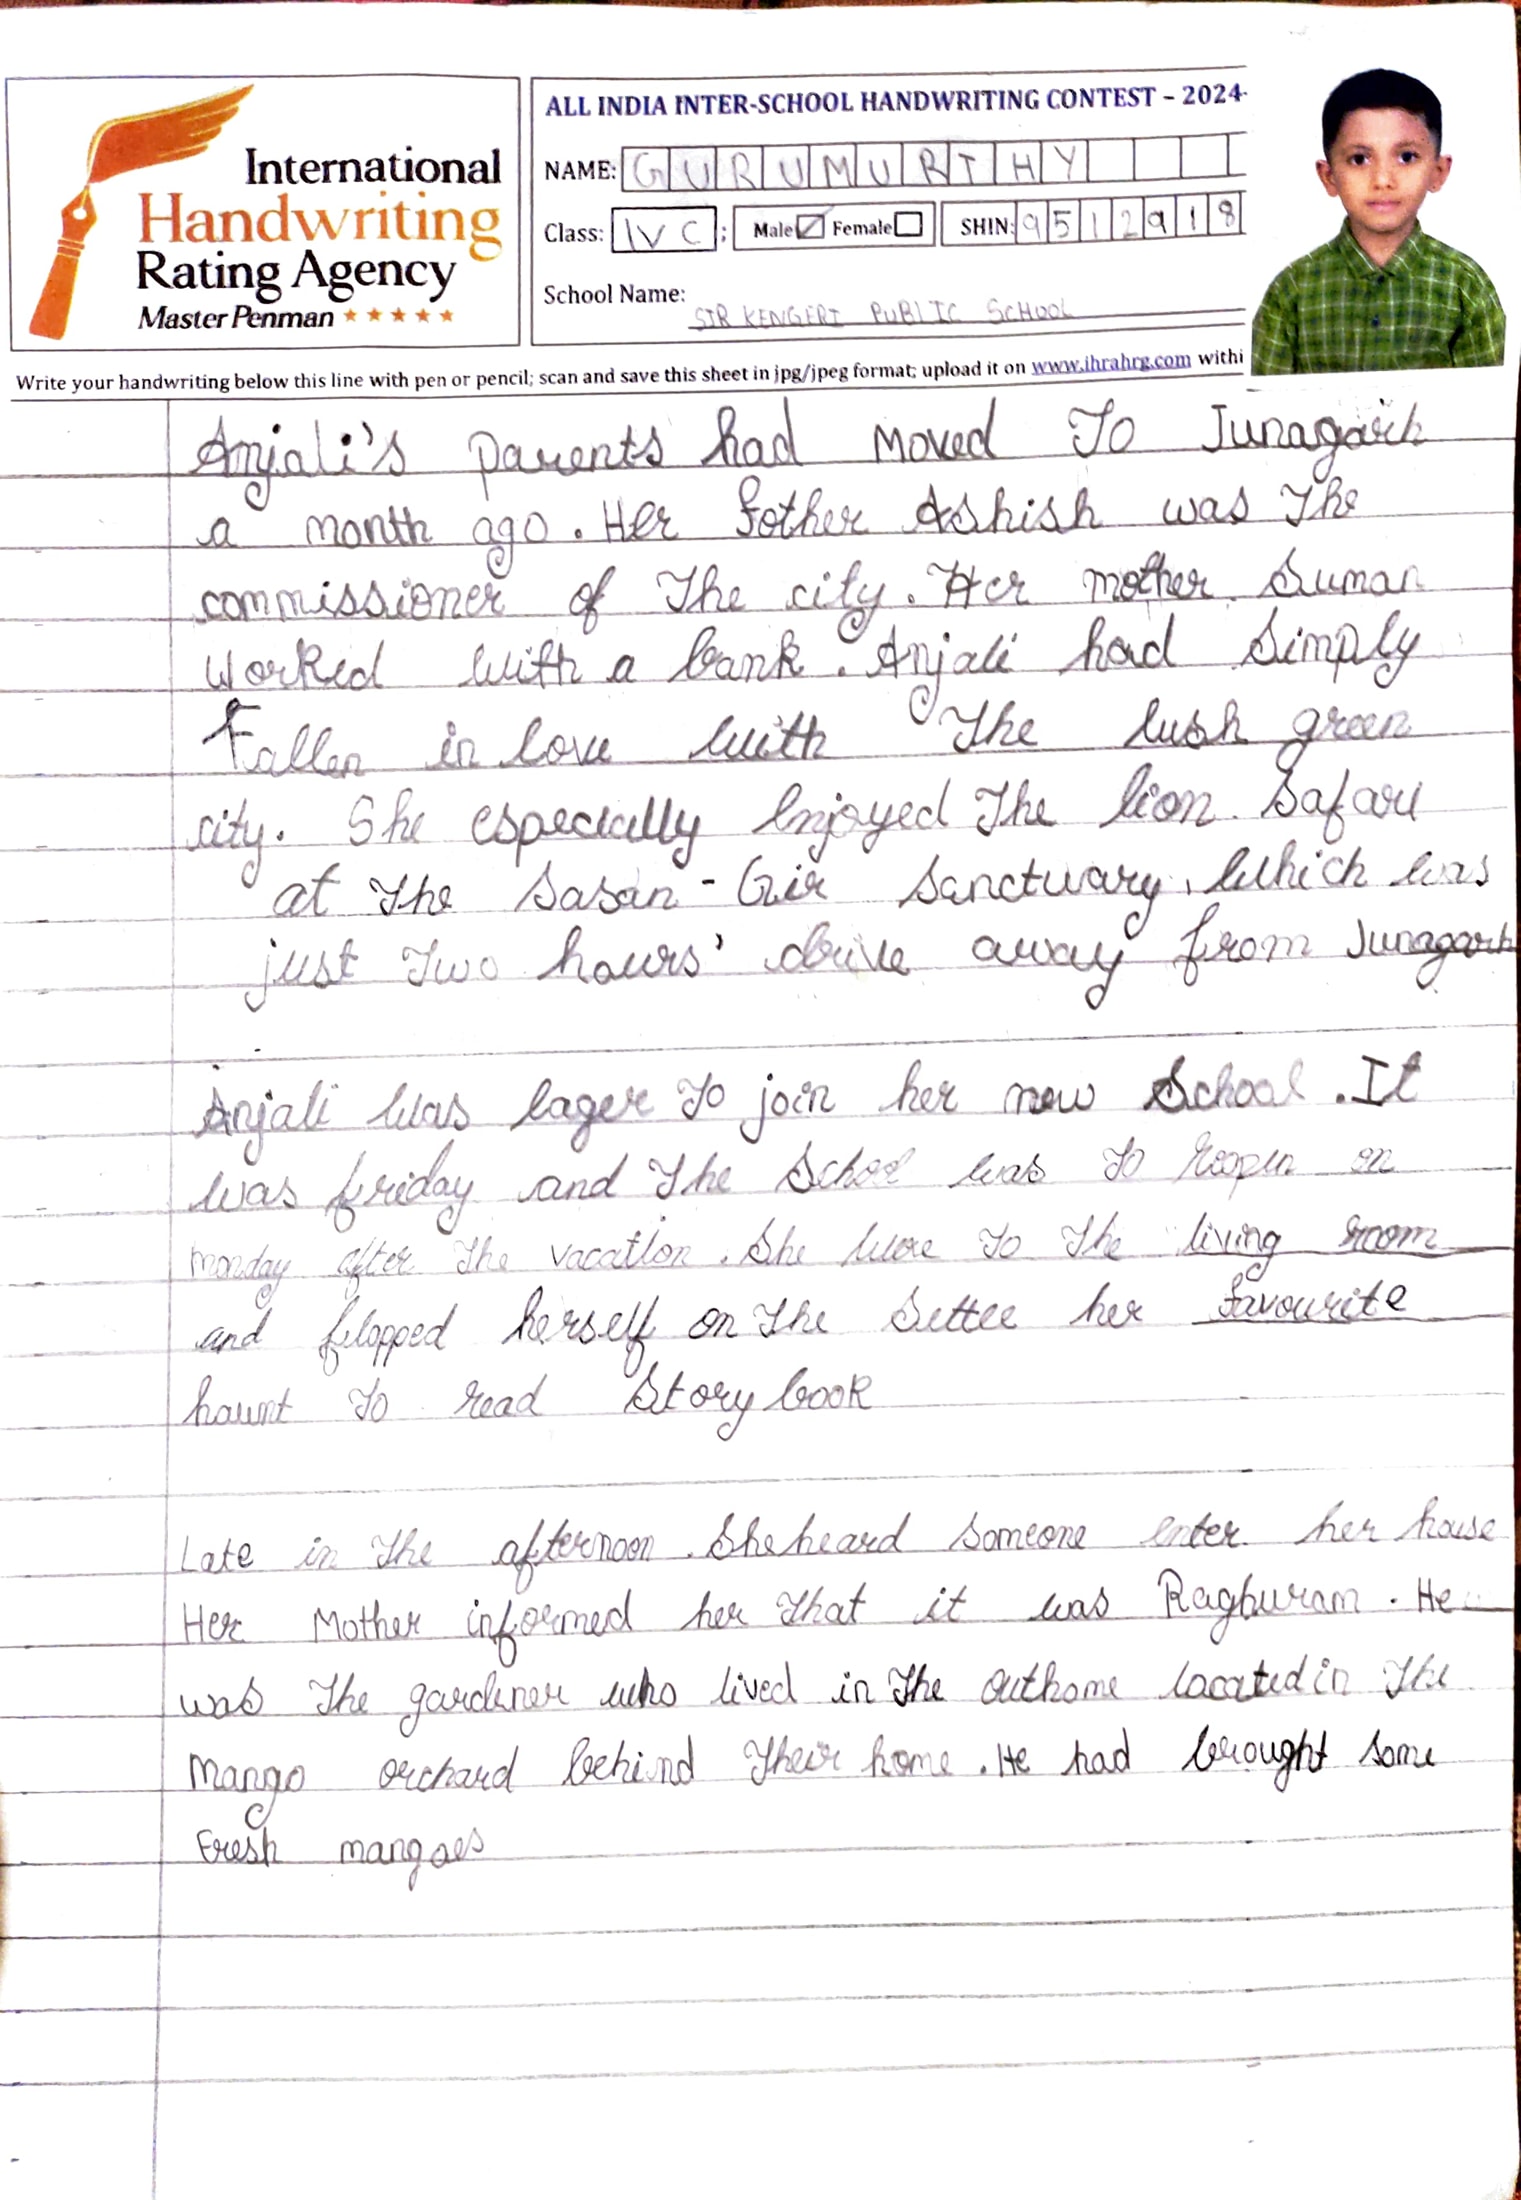 International
Handwriting
Rating Agency
Master Penman
ALL INDIA INTER-SCHOOL HANDWRITING CONTEST - 2024-
NAME: GURUMURTHY
Class: IV C ; Male Female SHIN: 9512918
School Name: SIR KENGERI PUBLIC SCHOOL
Write your handwriting below this line with pen or pencil; scan and save this sheet in jpg/jpeg format; upload it on www.ihrahrg.com withi
Anjali's parents had moved To Junagarh
a month ago. Her fother Ashish was The
commissioner of The city. Her mother Suman
Worked with a bank. Anjali had Simply
Fallen in love with The lush green
city. She especially enjoyed The lion Safari
at The Sasan-Gir Sanctuary, Which was
just Two hours' drive away from Junagarh
Anjali was eager To join her new School. It
was friday and The School was To reopen on
monday after The vacation. She To The living room
and flopped herself on The Settee her favourite
haunt To read Story book
Late in The afternoon. She heard Someone enter her house
Her Mother informed her That it was Raghuram. He
was The gardener who lived in The outhome located in The
Mango orchard behind Their home. He had brought Some
Fresh mangoes